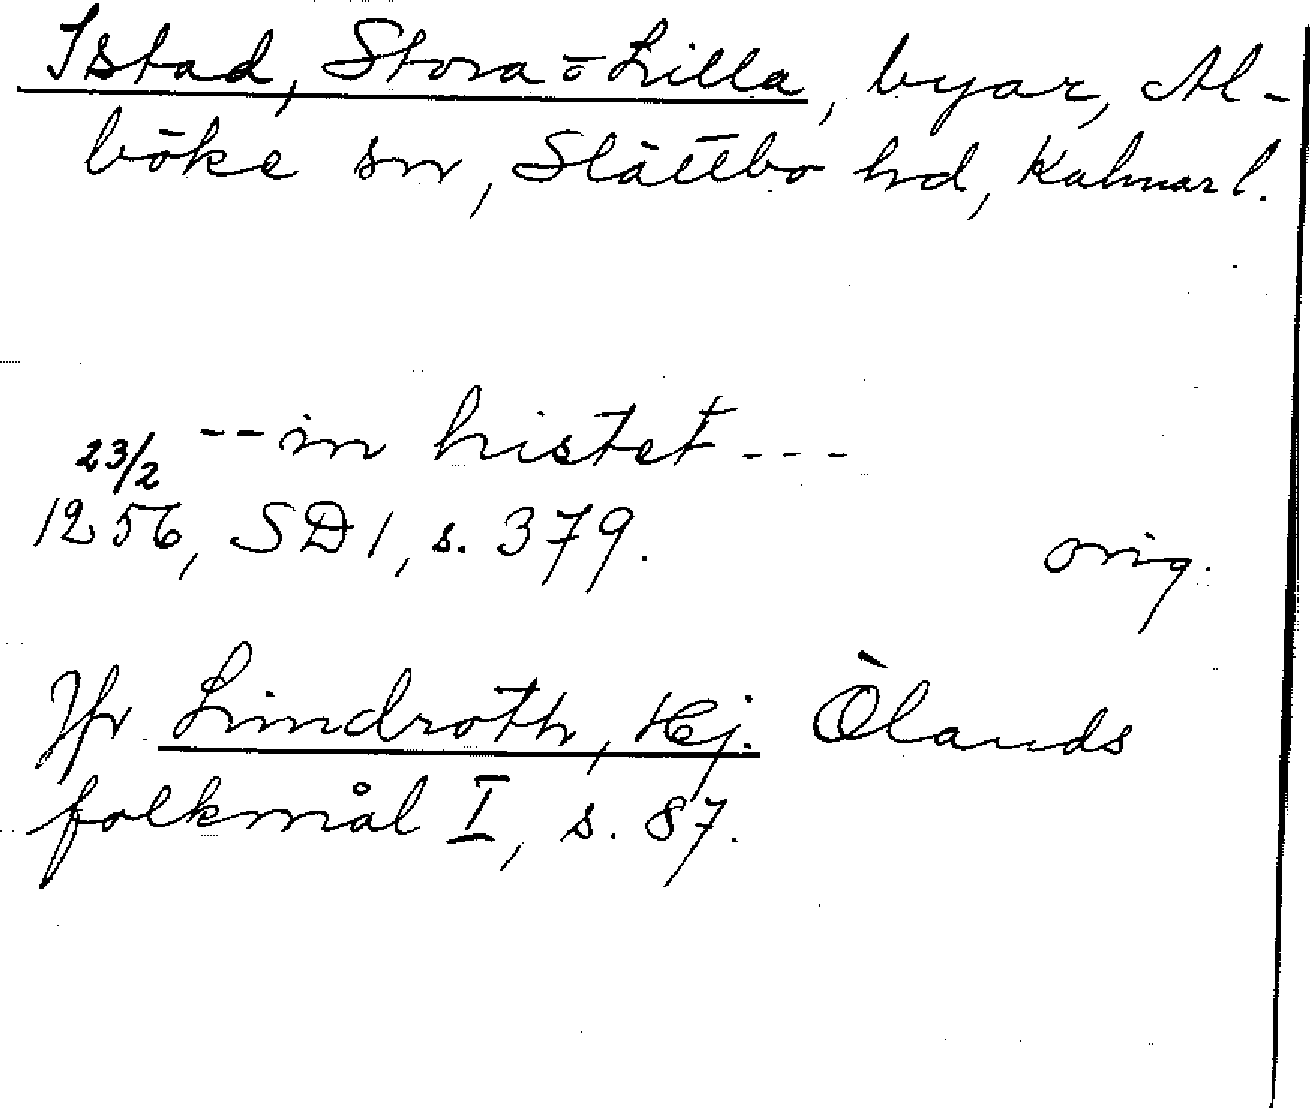 Istad, Stora o Lilla, byar, Al-
böke sn, Slättbo hd, Kalmar l.
-- in histet ---
23/2
1256, SD 1, s. 379.
orig.
Jfr Lindroth, Hj. Ölands
folkmål I, s. 87.